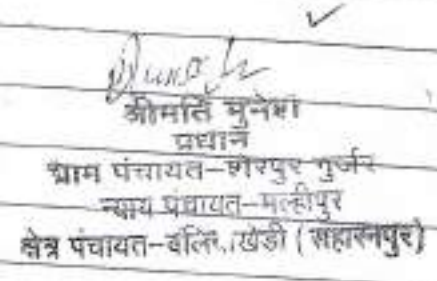 श्रीमति मुनेश
प्रधान
ग्राम पंचायत-शेरपुर गुर्जर
न्याय पंचायत-मल्हीपुर
क्षेत्र पंचायत-बलि.खेडी (सहारनपुर)